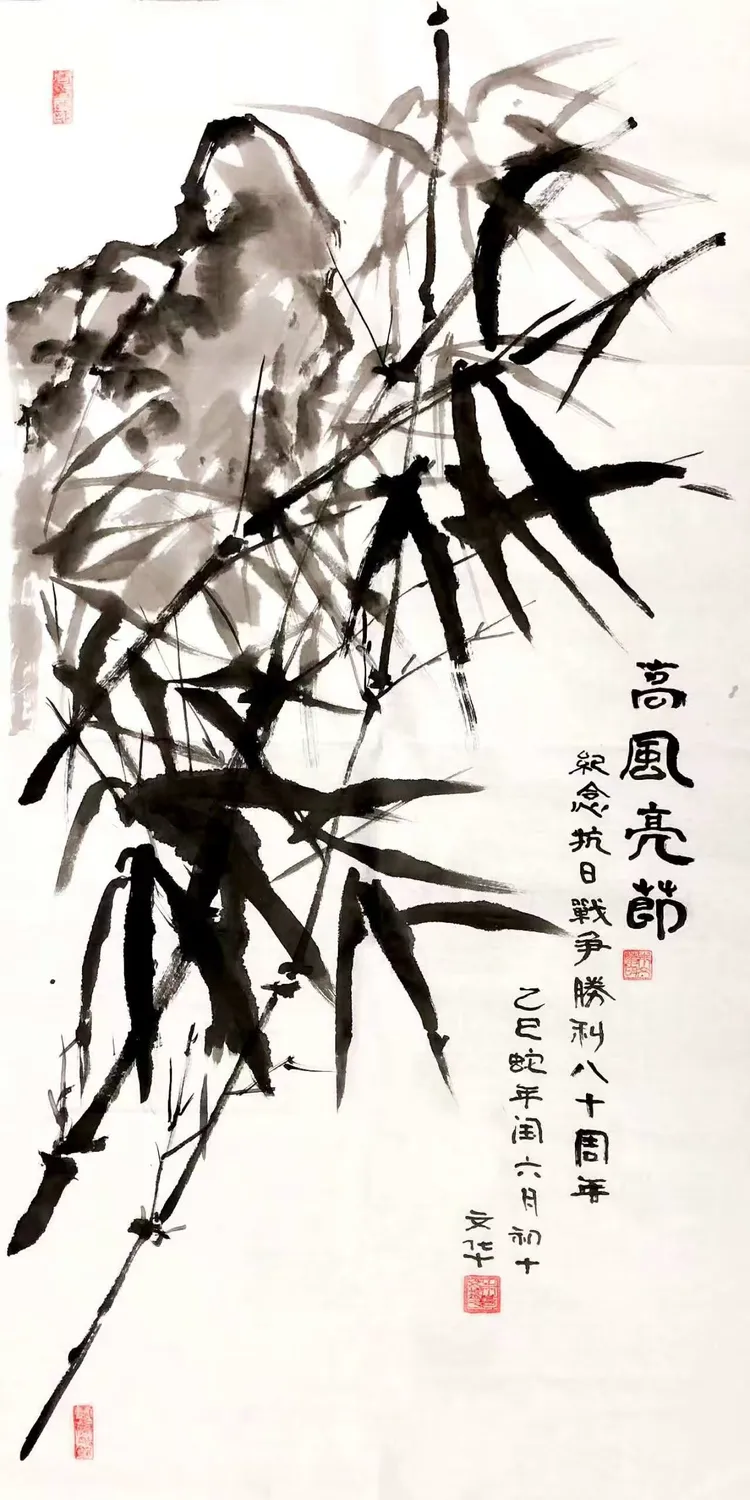 高風亮節
紀念抗日戰爭勝利八十周年
乙巳蛇年闰六月初十
文华